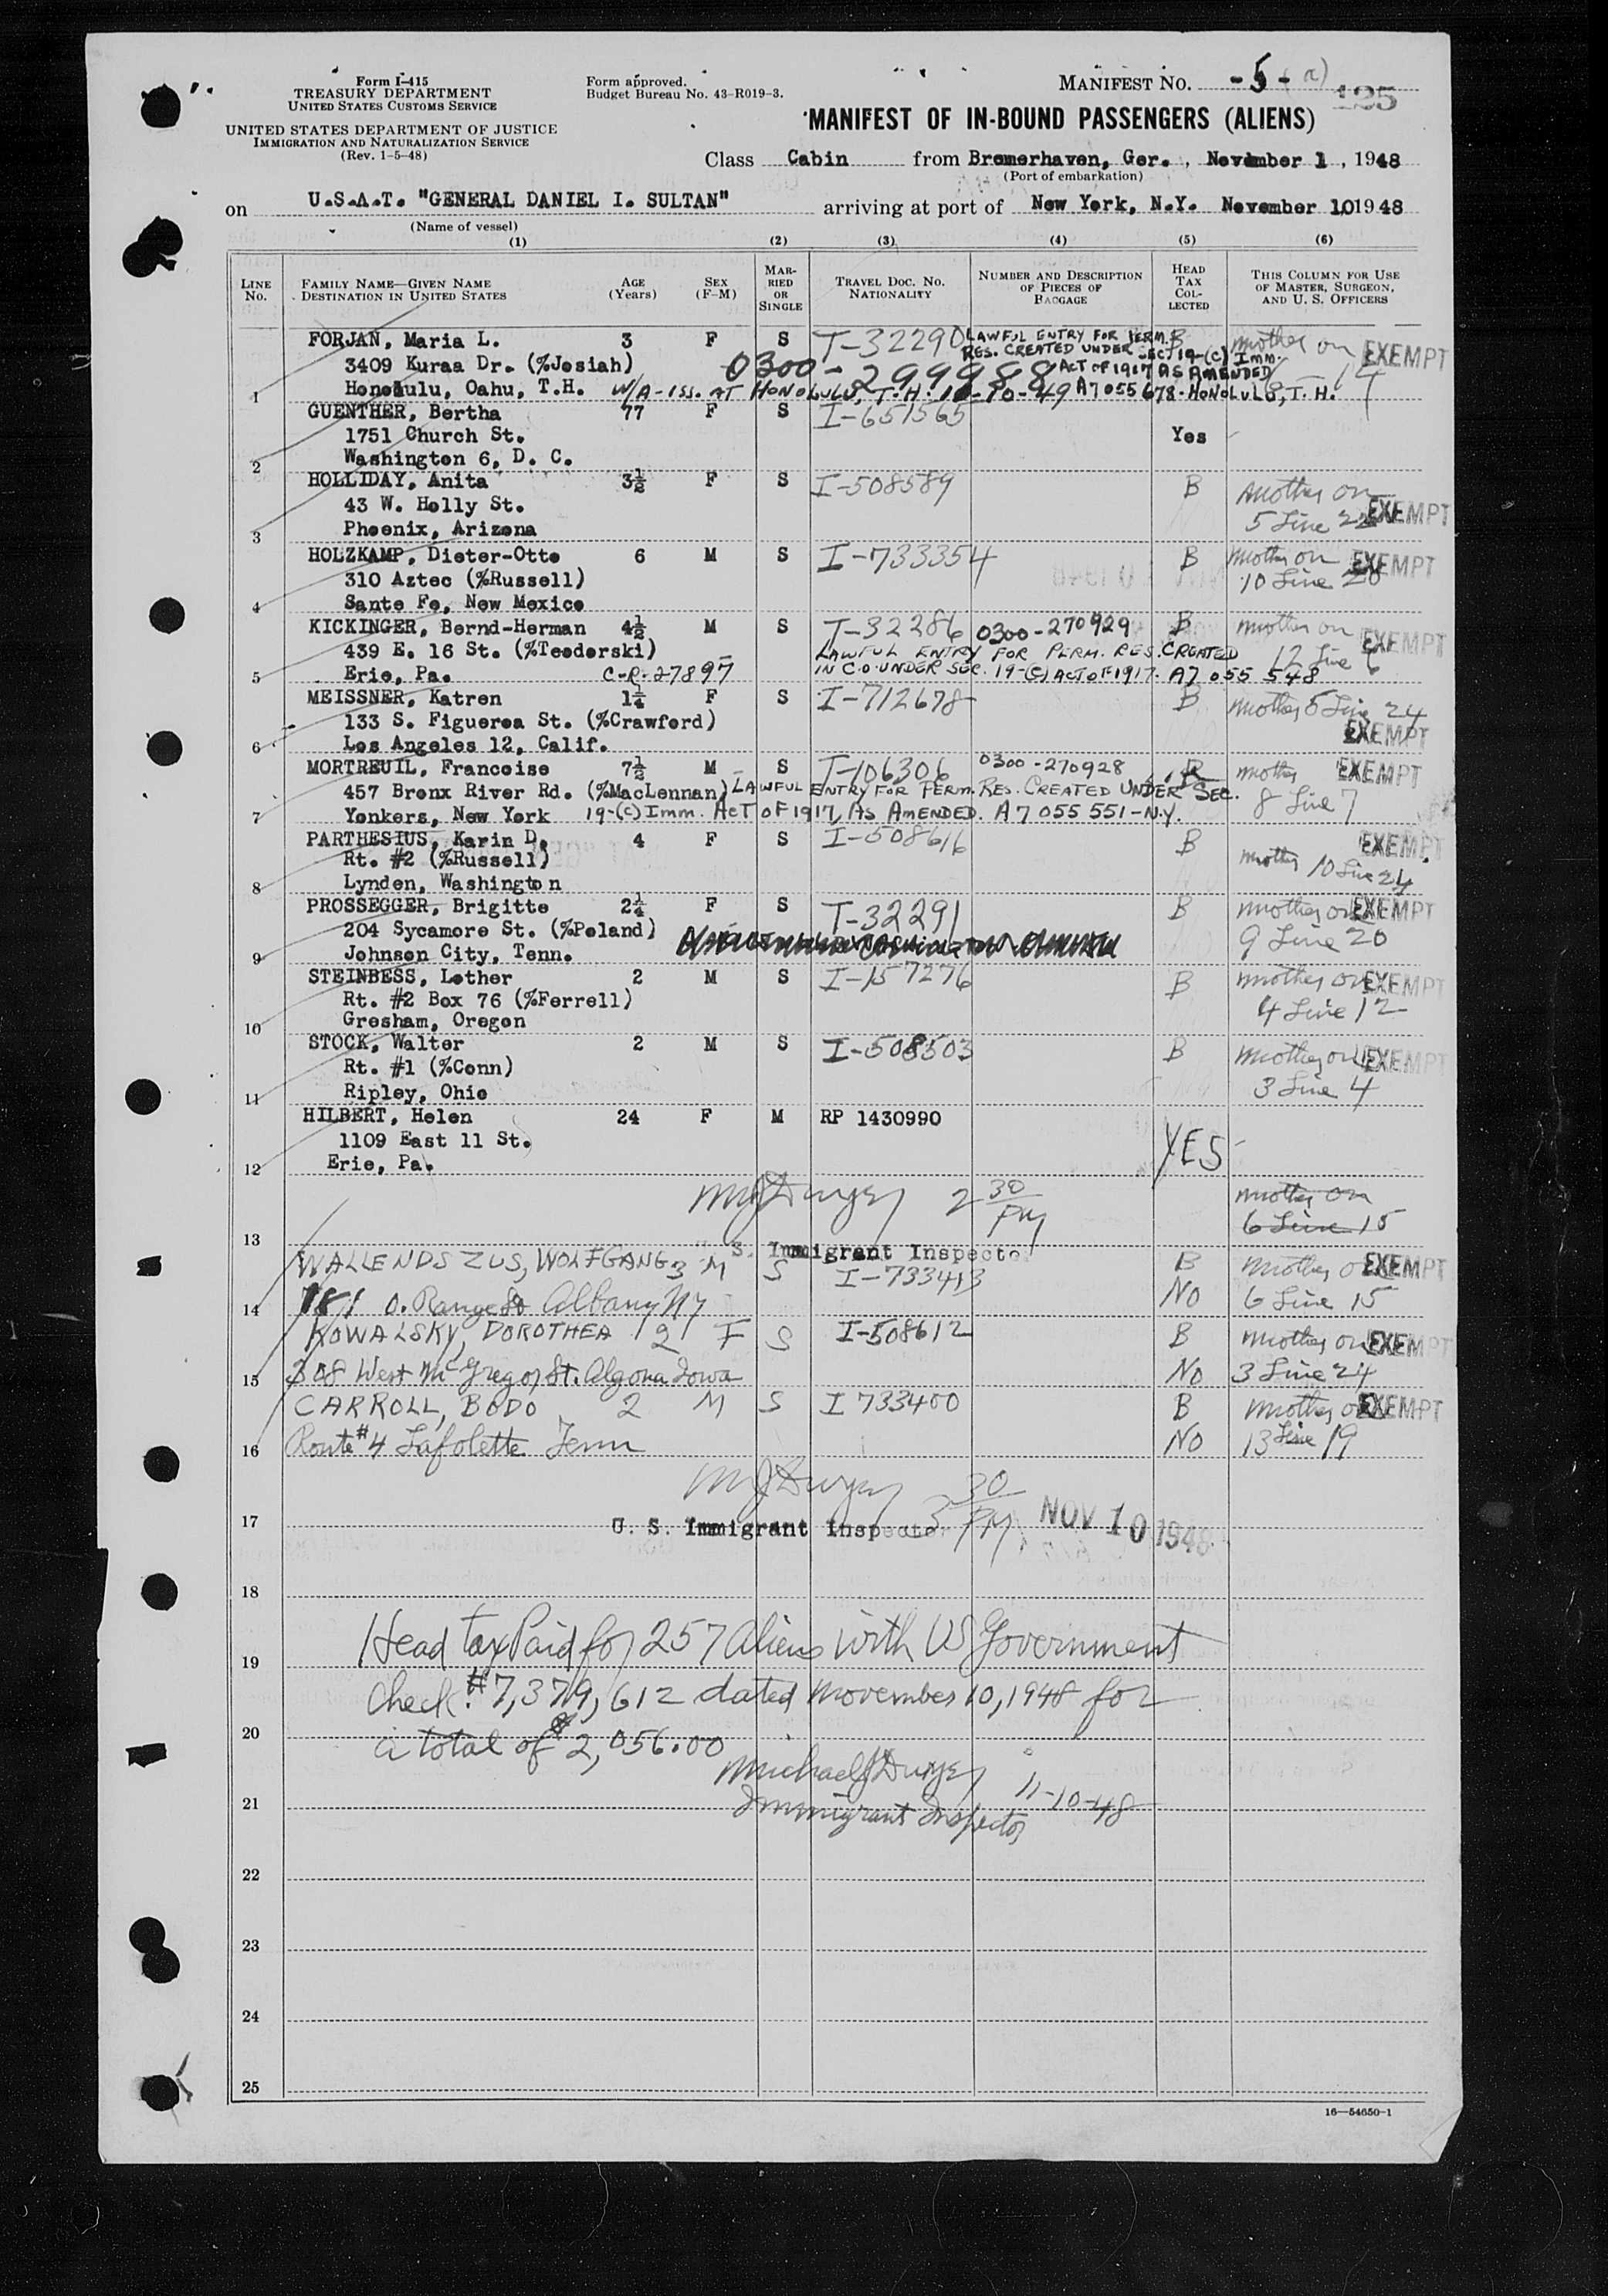 Form I-415
TREASURY DEPARTMENT
UNITED STATES CUSTOMS SERVICE
UNITED STATES DEPARTMENT OF JUSTICE
IMMIGRATION AND NATURALIZATION SERVICE
(Rev. 1-5-48)
Form approved.
Budget Bureau No. 43-R019-3.
MANIFEST NO. -5-(a)
125
MANIFEST OF IN-BOUND PASSENGERS (ALIENS)
Class Cabin from Bremerhaven, Ger., November 1, 1948
(Port of embarkation)
on U.S.A.T. "GENERAL DANIEL I. SULTAN" arriving at port of New York, N.Y. November 10 1948
(Name of vessel)
(1) (2) (3) (4) (5) (6)
LINE No. FAMILY NAME—GIVEN NAME DESTINATION IN UNITED STATES AGE (Years) SEX (F-M) MARRIED OR SINGLE TRAVEL DOC. NO. NATIONALITY NUMBER AND DESCRIPTION OF PIECES OF BAGGAGE HEAD TAX COLLECTED THIS COLUMN FOR USE OF MASTER, SURGEON, AND U. S. OFFICERS
FORJAN, Maria L. 3 F S T-32290 LAWFUL ENTRY FOR PERM. B mother on EXEMPT
RES. CREATED UNDER SECT 19-(C) IMM.
3409 Kuraa Dr. (%Josiah) 0300-299988 ACT OF 1917 AS AMENDED
1 Honolulu, Oahu, T.H. W/A-ISS. AT HONOLULU, T.H. 10-10-49 A7055678-HONOLULU, T.H.
GUENTHER, Bertha 77 F S I-651565
1751 Church St. Yes
2 Washington 6, D. C.
HOLLIDAY, Anita 3½ F S I-508589 B mother on
43 W. Holly St. EXEMPT
3 Phoenix, Arizona 5 Line 22
HOLZKAMP, Dieter-Otto 6 M S I-733354 B mother on EXEMPT
310 Aztec (%Russell) 10 Line 20
4 Sante Fe, New Mexico
KICKINGER, Bernd-Herman 4½ M S T-32286 0300-270929 B mother on EXEMPT
439 E. 16 St. (%Teodorski) LAWFUL ENTRY FOR PERM. RES. CREATED 12 Line 6
5 Erie, Pa. C-R-27897 IN C.O. UNDER SEC. 19-(C) ACT OF 1917. A7 055 548
MEISSNER, Katren 1¼ F S I-712678 B mother 5 Line 24
133 S. Figueroa St. (%Crawford) EXEMPT
6 Los Angeles 12, Calif.
MORTREUIL, Francoise 7½ M S T-106306 0300-270928 B mother EXEMPT
457 Bronx River Rd. (%MacLennan) LAWFUL ENTRY FOR PERM. RES. CREATED UNDER SEC. 8 Line 7
7 Yonkers, New York 19-(C) IMM. ACT OF 1917, AS AMENDED. A7 055 551-N.Y.
PARTHESIUS, Karin D. 4 F S I-508616 B EXEMPT
Rt. #2 (%Russell) mother 10 Line 24
8 Lynden, Washington
PROSSEGGER, Brigitte 2¼ F S T-32291 B mother on EXEMPT
204 Sycamore St. (%Poland) 9 Line 20
9 Johnson City, Tenn.
STEINBESS, Lother 2 M S I-157276 B mother on EXEMPT
Rt. #2 Box 76 (%Ferrell) 4 Line 12
10 Gresham, Oregon
STOCK, Walter 2 M S I-508503 B mother on EXEMPT
Rt. #1 (%Conn) 3 Line 4
11 Ripley, Ohio
HILBERT, Helen 24 F M RP 1430990
1109 East 11 St. YES
12 Erie, Pa.
MJ Dwyer 2 30 PM mother on
13 6 Line 15
S. Immigrant Inspector
WALLENDSZUS, WOLFGANG 3 M S I-733413 B mother on EXEMPT
14 181 O. Range St Albany NY No 6 Line 15
KOWALSKY, DOROTHEA 2 F S I-508612 B mother on EXEMPT
15 308 West McGregor St. Algona Iowa No 3 Line 24
CARROLL, BODO 2 M S I 733400 B mother on EXEMPT
16 Route #4 Lafolette Tenn No 13 Line 19
MJ Dwyer 3 30 PM
17 U. S. Immigrant Inspector NOV 10 1948
18
19 Head tax Paid for 257 aliens with US Government
20 Check #7,379,612 dated November 10, 1948 for
a total of $2,056.00
21 Michael J Dwyer 11-10-48
Immigrant Inspector
22
23
24
25
16—54650-1